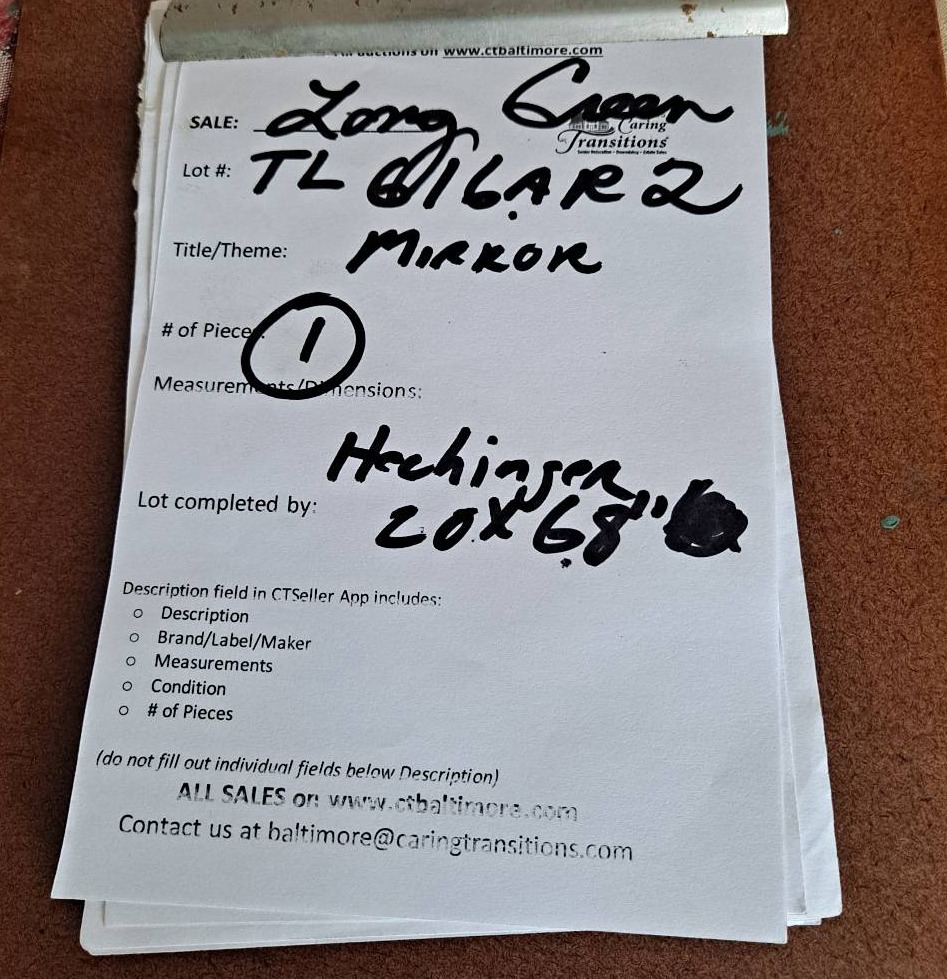 auctions on www.ctbaltimore.com
SALE: Long Green
Caring
Transitions
Lot #: TL 616AR2
Title/Theme: MIRROR
# of Pieces: 1
Measurements/Dimensions:
Hechinger
Lot completed by: 20X68"
Description field in CTSeller App includes:
○ Description
○ Brand/Label/Maker
○ Measurements
○ Condition
○ # of Pieces
(do not fill out individual fields below Description)
ALL SALES on www.ctbaltimore.com
Contact us at baltimore@caringtransitions.com